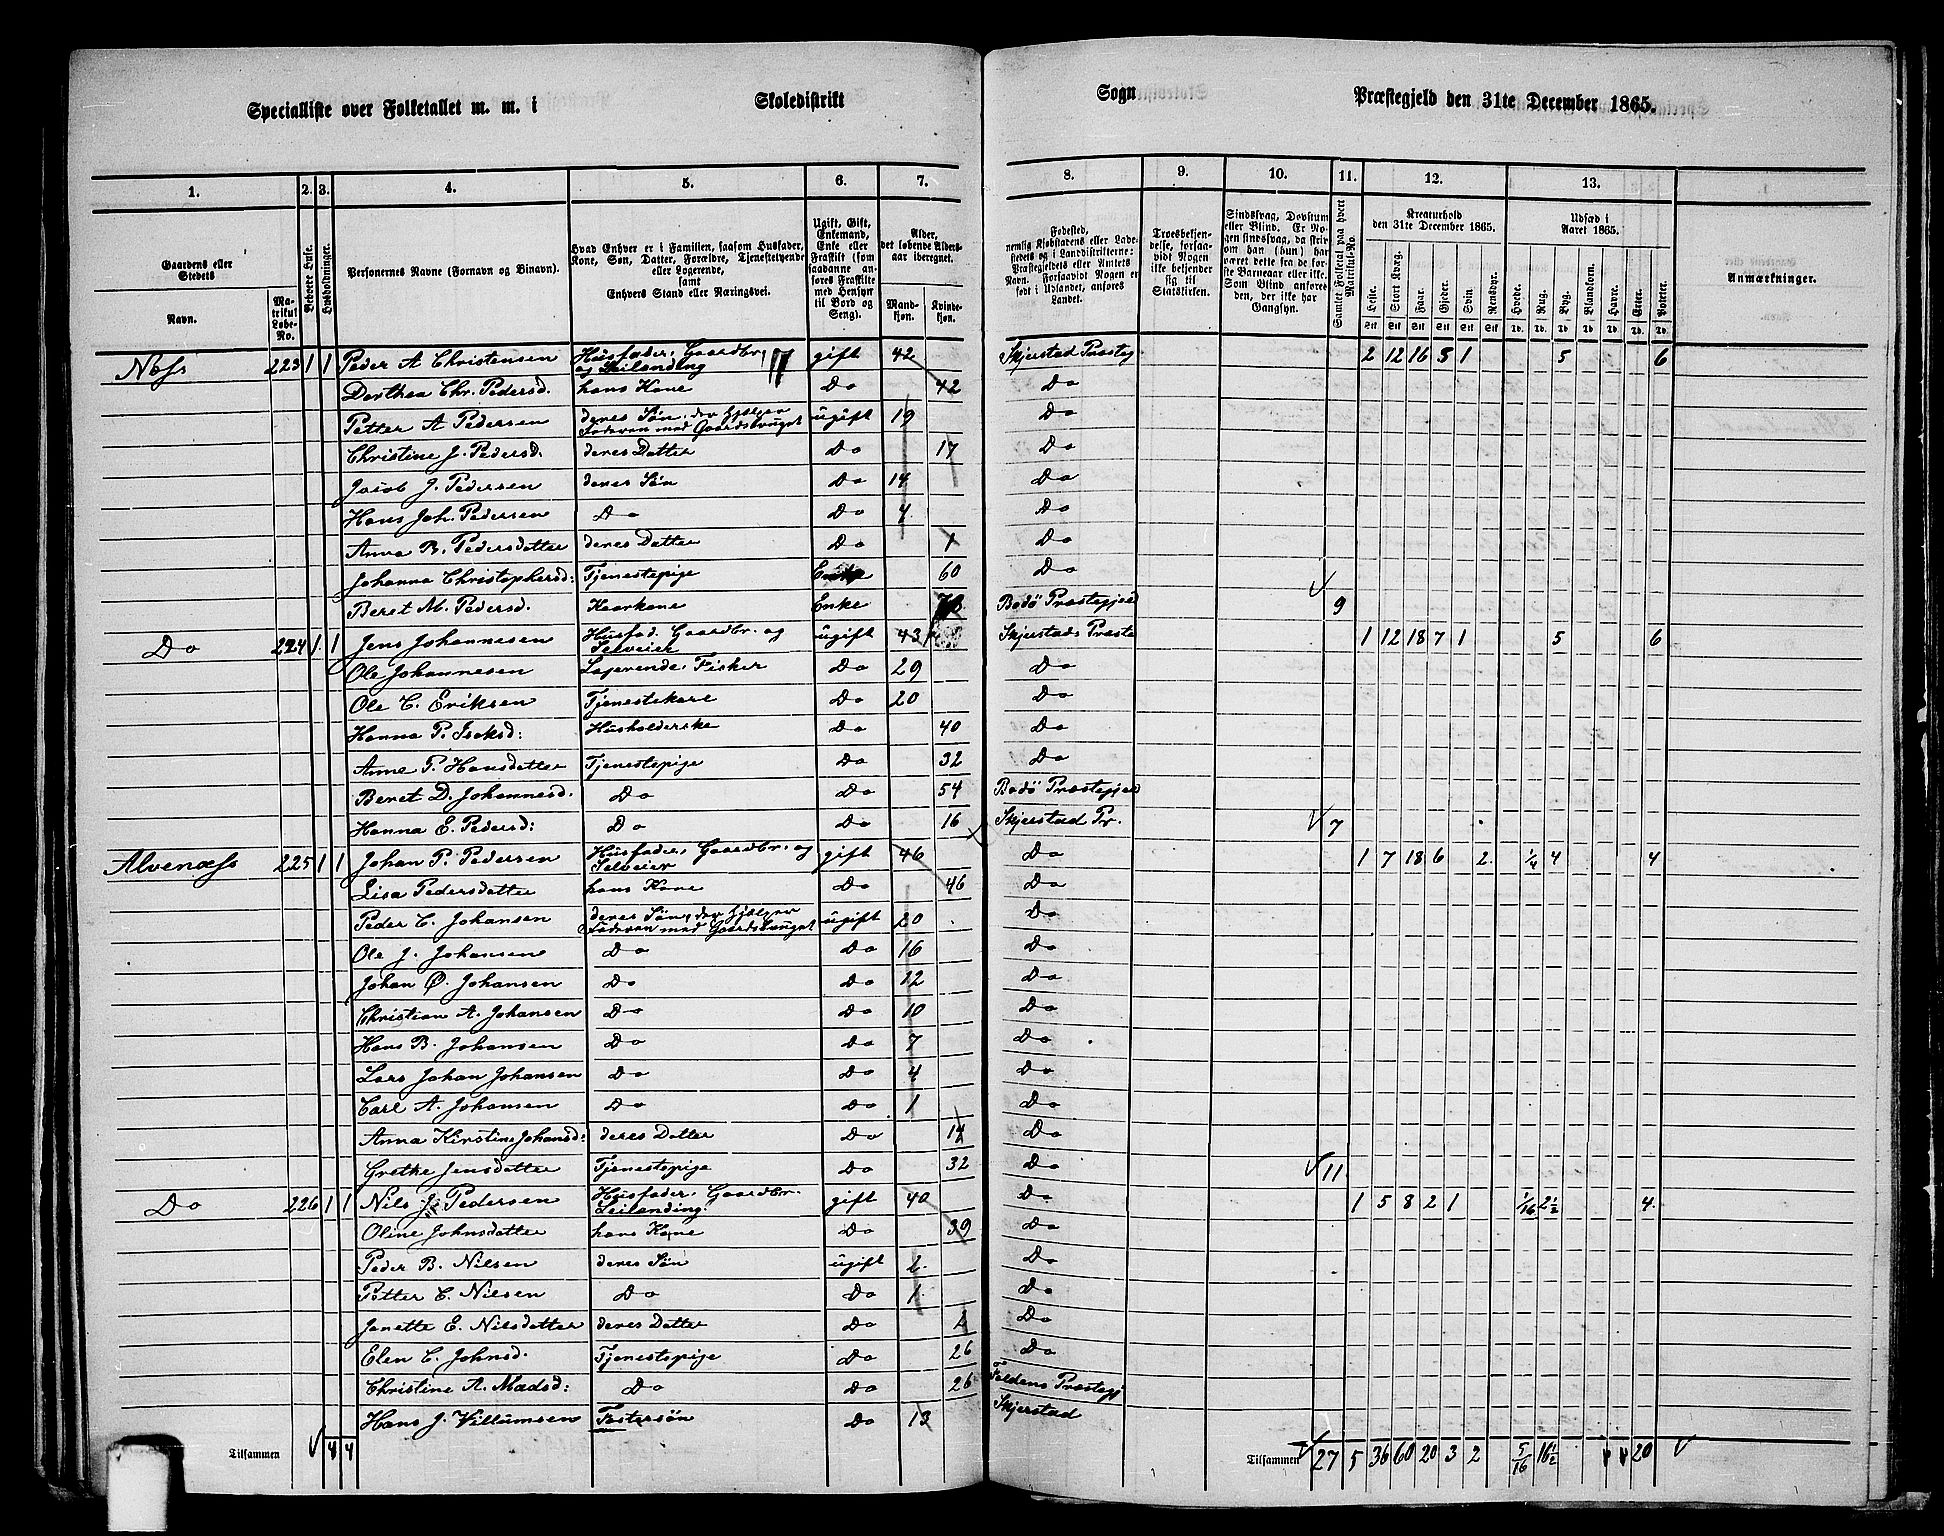 Specialliste over Folketallet m. m. i Skoledistrikt Sogn Præstegjeld den 31te December 1865.
1. 2. 3. 4. 5. 6. 7. 8. 9. 10. 11. 12. 13.
Gaardens eller Stedets
Navn.
Matrikul Løbe-No.
Beboede Huse.
Husholdninger.
Personernes Navne (Fornavn og Binavn).
Hvad Enhver er i Familien, saasom Husfader, Kone, Søn, Datter, Forældre, Tjenestetyende eller Logerende, samt Enhvers Stand eller Næringsvei.
Ugift, Gift, Enkemand, Enke eller Fraskilt (som saadanne anføres Fraskilte med Hensyn til Bord og Seng).
Alder, det løbende Aldersaar iberegnet.
Mandkjøn. Kvindekjøn.
Fødested, nemlig Kjøbstadens eller Ladestedets og i Landdistrikterne: Præstegjeldets eller Amtets Navn. Forsaavidt Nogen er født i Udlandet, anføres Landet.
Troesbekjendelse, forsaavidt Nogen ikke bekjender sig til Statskirken.
Sindssvag, Døvstum eller Blind. Er Nogen sindssvag, da skrives om han (hun) har været dette fra de første Barneaar eller ikke. Som Blind anføres den, der ikke har Gangsyn.
Samlet Folketal paa hvert Matrikul-No.
Kreaturhold den 31te December 1865.
Heste. Stort Kvæg. Faar. Gjeder. Svin. Rensdyr.
Udsæd i Aaret 1865.
Hvede. Rug. Byg. Blandkorn. Havre. Erter. Poteter.
Anmærkninger.
Næss 223 1 1 Peder A Christensen Husfader, Gaardbr. og Leilænding gift 42 Skjerstad Præstegj 2 12 16 5 1 5 6
Dorthea Chr. Pedersd. hans Kone Do 42 Do
Petter A Pedersen deres Søn, der hjelper Faderen med Gaardsbruget ugift 19 Do
Christine J. Pedersd. deres Datter Do 17 Do
Jacob J. Pedersen deres Søn Do 14 Do
Hans Joh. Pedersen Do Do 4 Do
Anna B. Pedersdatter deres Datter Do 1 Do
Johanna Christophersd: Tjenestepige Enke 60 Do
Beret M. Pedersd. Kaarkone Enke Bodö Præstegjeld 9
Do 224 1 1 Jens Johannesen Husfad. Gaardbr. og Selveier ugift 43 Skjerstads Præste 1 12 18 7 1 5 6
Ole Johannesen Logerende, Fisker Do 29 Do
Ole C. Eriksen Tjenestekarl Do 20 Do
Hanna P. Isaksd: Husholderske Do 40 Do
Anne P. Hansdatter Tjenestepige Do 32 Do
Beret D. Johannesd. Do Do 54 Bodö Præstegjeld
Hanna E. Pedersd: Do Do 16 Skjerstad Pr. 7
Alvenæss 225 1 1 Johan P. Pedersen Husfader, Gaardbr. og Selveier gift 46 Do 1 7 18 6 2 1/4 4 4
Lisa Pedersdatter hans Kone Do 46 Do
Peder C. Johansen deres Søn, der hjelper Faderen med Gaardsbruget ugift 20 Do
Ole J. Johansen Do Do 16 Do
Johan Ø. Johansen Do Do 12 Do
Christian A. Johansen Do Do 10 Do
Hans B. Johansen Do Do 7 Do
Lars Johan Johansen Do Do 4 Do
Carl A. Johansen Do Do 1 Do
Anna Kirstine Johansd: deres Datter Do 14 Do
Grethe Jensdatter Tjenestepige Do 32 Do 11
Do 226 1 1 Nils J. Pedersen Husfader, Gaardbr. Leilænding. gift 40 Do 1 5 8 2 1 1/16 2 1/2 4
Oline Johnsdatter hans Kone Do 39 Do
Peder B. Nilsen deres Søn ugift 2 Do
Petter C. Nilsen Do Do 1 Do
Janette E. Nilsdatter deres Datter Do Do
Elen C. Johnsd. Tjenestepige Do 26 Do
Christine A. Madsd: Do Do 26 Foldens Præstegj
Hans J. Villumsen Fostersøn Do 13 Skjerstad
Tilsammen 4 4 Tilsammen 27 5 36 60 20 3 2 5/16 16 1/2 20